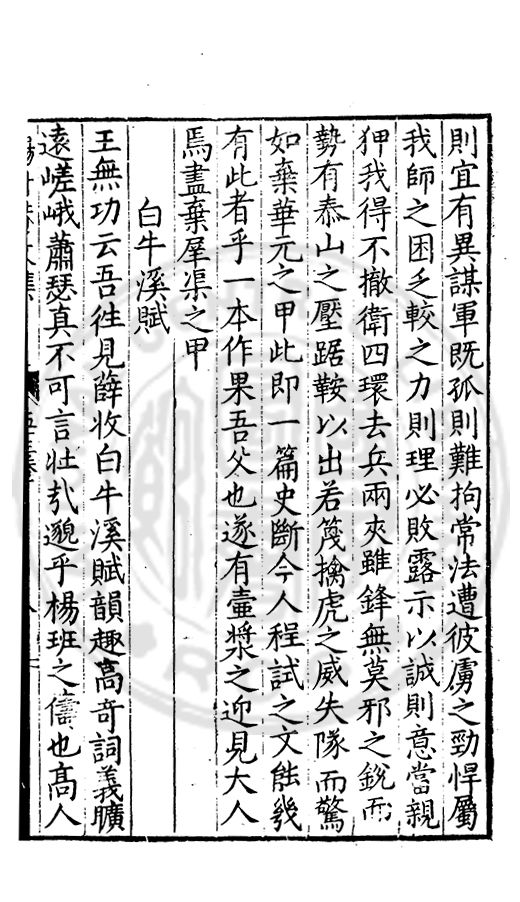 則宜有異謀軍既孤則難拘常法遭彼虜之勁悍屬
我師之困乏較之力則理必敗露示以誠則意當親
狎我得不撤衛四環去兵兩夾雖鋒無莫邪之銳而
勢有泰山之壓踞鞍以出若蔑擒虎之威失隊而驚
如棄華元之甲此即一篇史斷今人程試之文能幾
有此者乎一本作果吾父也遂有壷漿之迎見大人
焉盡棄犀渠之甲
白牛溪賦
王無功云吾徃見薛收白牛溪賦韻趣高奇詞義曠
逺嵯峨蕭瑟真不可言壮㢤邈乎楊班之儔也高人